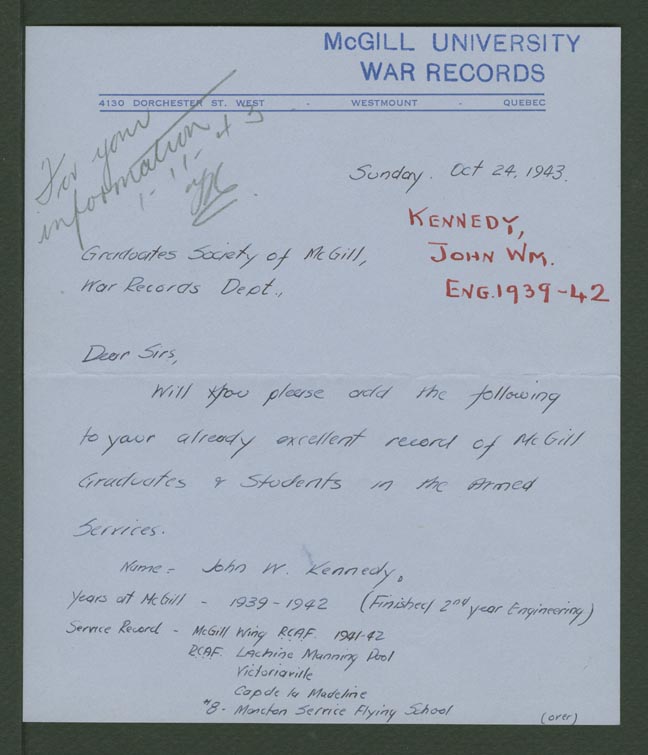 McGILL UNIVERSITY
WAR RECORDS
4130 DORCHESTER ST. WEST · WESTMOUNT · QUEBEC
For your
information
1-11-43
Sunday. Oct 24, 1943.
KENNEDY,
JOHN WM.
ENG. 1939-42
Graduates Society of McGill,
War Records Dept.,
Dear Sirs,
Will you please add the following
to your already excellent record of McGill
Graduates & Students in the Armed
Services.
Name - John W. Kennedy.
Years at McGill - 1939-1942 (Finished 2nd year Engineering)
Service Record - McGill Wing RCAF. 1941-42
RCAF. Lachine Manning Pool
Victoriaville
Cap de la Madeline
#8 - Moncton Service Flying School
(over)